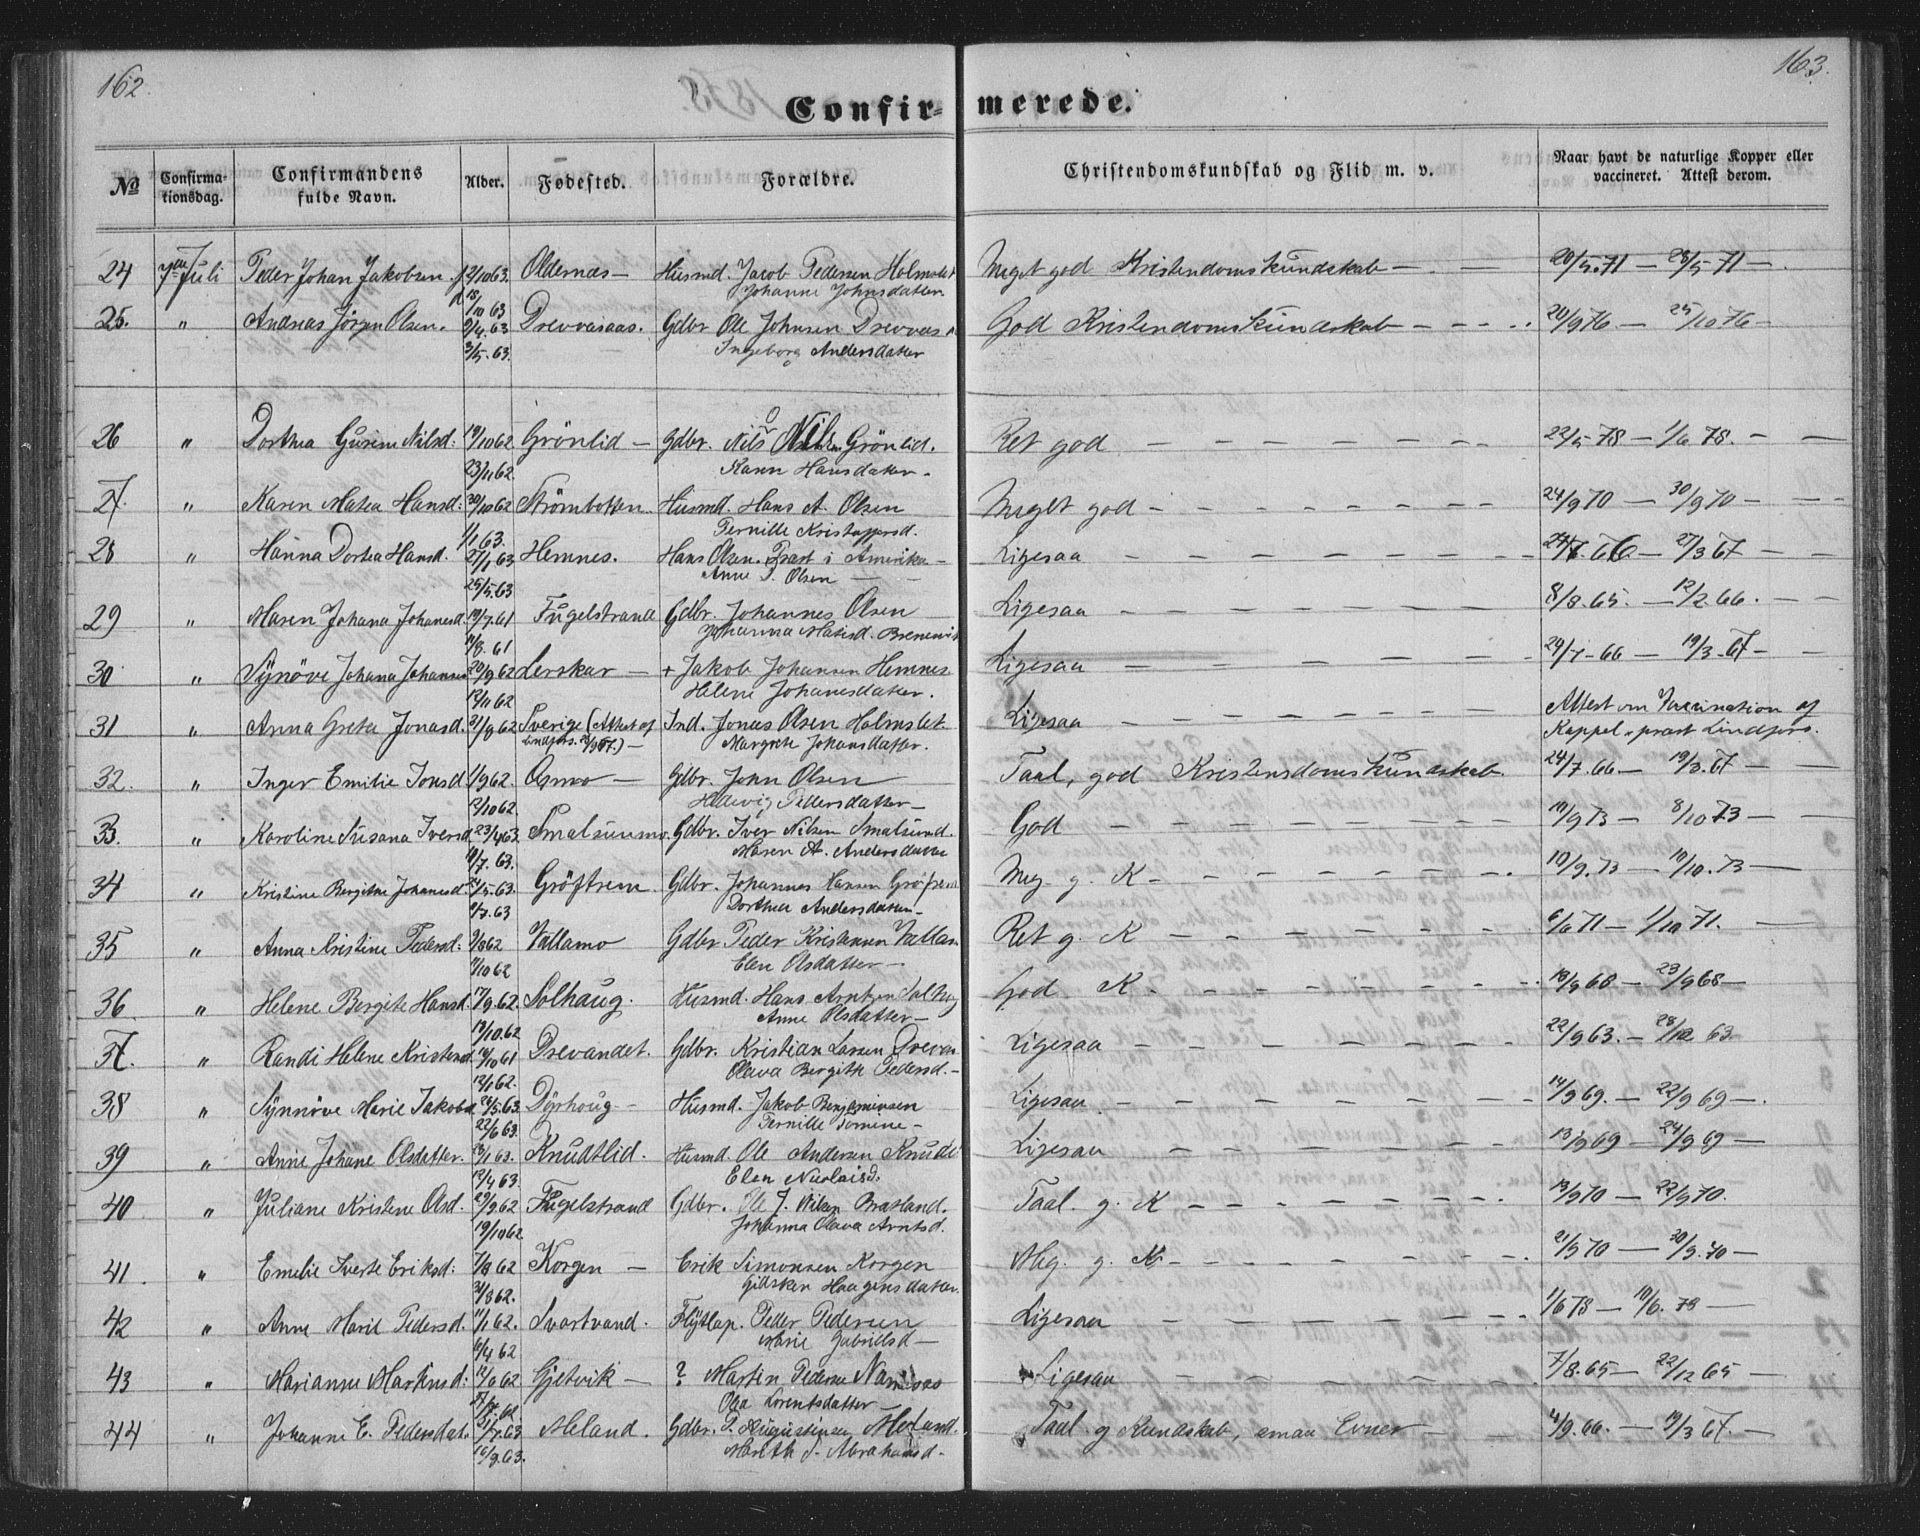 162.
163.
Confirmerede.
No
Confirmationsdag.
Confirmandens fulde Navn.
Alder.
Fødested.
Forældre.
Christendomskundskab og Flid m. v.
Naar havt de naturlige Kopper eller vaccineret. Attest derom.
24 7de Juli Peder Johan Jakobsen f 2/10 63. Oldernæs — Husmd. Jacob Pedersen Holmslet Meget god Kristendomskundskab — 20/5.71 — 28/5 71 —
d 18/10 63 Johanne Johnsdatter
25. " Andreas Jörgen Olsen. 9/4.63 Drevvasaas. Gdbr Ole Johnsen Drevvas God Kristendomskundskab — 20/9 76 — 25/10 76 —
3/5.63. Ingeborg Andersdatter
26 " Dorthea Gurine Nilsd. 19/10 62 Grönlid — Gdbr. Nils Nilsen Grönlid. Ret god — 22/5 78 — 1/6 78. —
23/11 62 Karen Hansdatter —
27. " Karen Matea Hansd. 30/10 62 Strömbotten. Husmd. Hans A. Olsen Meget god — 24/9 70 — 30/9 70 —
1/1 63. Pernille Kristoffersd.
28 " Hanna Dortea Hansd. 27/1 63 Hemnes. Hans Olsen. Præst i Amerika — Ligesaa — 27/3 67 —
25/5.63 Anne J. Olsen —
29 " Maren Johana Johanesd. 19/7.61 Fugelstrand Gdbr. Johannes Olsen Ligesaa — 8/8.65. — 12/2 66. —
11/8.61 Johanna Matisd.
30 " Synöve Johana Johannesd 20/9 62 Lerskar — + Jakob Johansen Hemnes Ligesaa — 29/7-66 — 19/3-67 —
12/11 62 Helene Johanesdatter.
31 " Anna Greta Jonasd. 21/9 62 Sverige (Attest af Ind. Jonas Olsen Holmslet. Ligesaa — Attest om Vaccination af
Lindfors. Margrete Johansdatter. Kappel. præst Lindfors.
32. " Inger Emilie Jonsd 1/9 62. Osmo — Gdbr. John Olsen Taal. god Kristensdomskundskab 24/7.66 — 19/3.67 —
12/10 62 Hedevig Pedersdatter —
33. " Karoline Susana Iversd. 23/4 63. Smalsunmo. Gdbr. Iver Nilsen Smalsund. God — 19/9 73 — 8/10 73 —
11/7. 63. Maren A. Andersdatter
34 " Kristine Bergitte Johanesd 24/5.63. Gröftrem. Gdbr. Johannes Hansen Meg. g. K — 10/9.73 — 10/10.73 —
9/7.63 Dorthea Andersdatter —
35 " Anna Kristine Pedersd. 9/8 62 Vallamo Gdbr. Peder Kristensen Ret g. K — 6/6 71 — 1/10 71. —
11/10 62 Elen Olsdatter —
36 " Helene Bergite Hansd. 17/9.62. Solhaug. Husmd. Hans Arntzen Solhaug God K — 19/9 68 — 23/9 68 —
19/10.62 Anne Olsdatter —
37. " Randi Helene Kristensd. 19/10 61 Drevandet. Gdbr. Kristian Larsen Drevan Ligesaa — 22/9 63. — 28/12 63
12/1 62. Olava Bergith Pedersd. —
38 " Synnöve Marie Jakobsd. 24/5.63. Dyrhoug — Husmd. Jakob Benjaminsen Ligesaa — 14/9 69. — 22/9 69 —.
22/6 63. Pernille Tomine —
39 " Anne Johane Olsdatter. 23/1 63. Knudtlid. Husmd. Ole Andersen Knudt Ligesaa — 13/9 69 — 24/9 69 —
12/4 63. Elen Nicolaisd.
40 " Juliane Kristene Olsd. 29/9 62 Fugelstrand Gdbr. Ole J. Nilsen Bratland. Taal. g. K — 13/9 70 — 22/9 70.
19/10 62 Johanna Olava Arntsd.
41. " Emelie Iverte Eriksd. 7/8 62 Korgen — Erik Simonsen Korgen Meg. g. K — 21/9 70 — 30/9.70 —
31/8 62. Gidsken Haagensdatter.
42 " Anne Marie Pedersd. 11/1 62. Svartvand. Flytlap. Peder Pedersen Ligesaa — 1/6 78 — 10/6. 78 —
6/4 62 Marie Gabrielsd —
43 " Marianne Martinsd. 12/6 62 Gjetvik — ? Martin Pedersen Ligesaa — 7/8.65 — 22/12 65 —
Olea Lorentsdatter
44 " Johanne E. Pedersdat. 31/7.63 Meland. Gdbr. P. Augustinsen Meland. Taal g Kundskab, smaa Evner — 4/9.66. — 19/3 67. —
16/9.63. Mareth S. Abrahamsd.